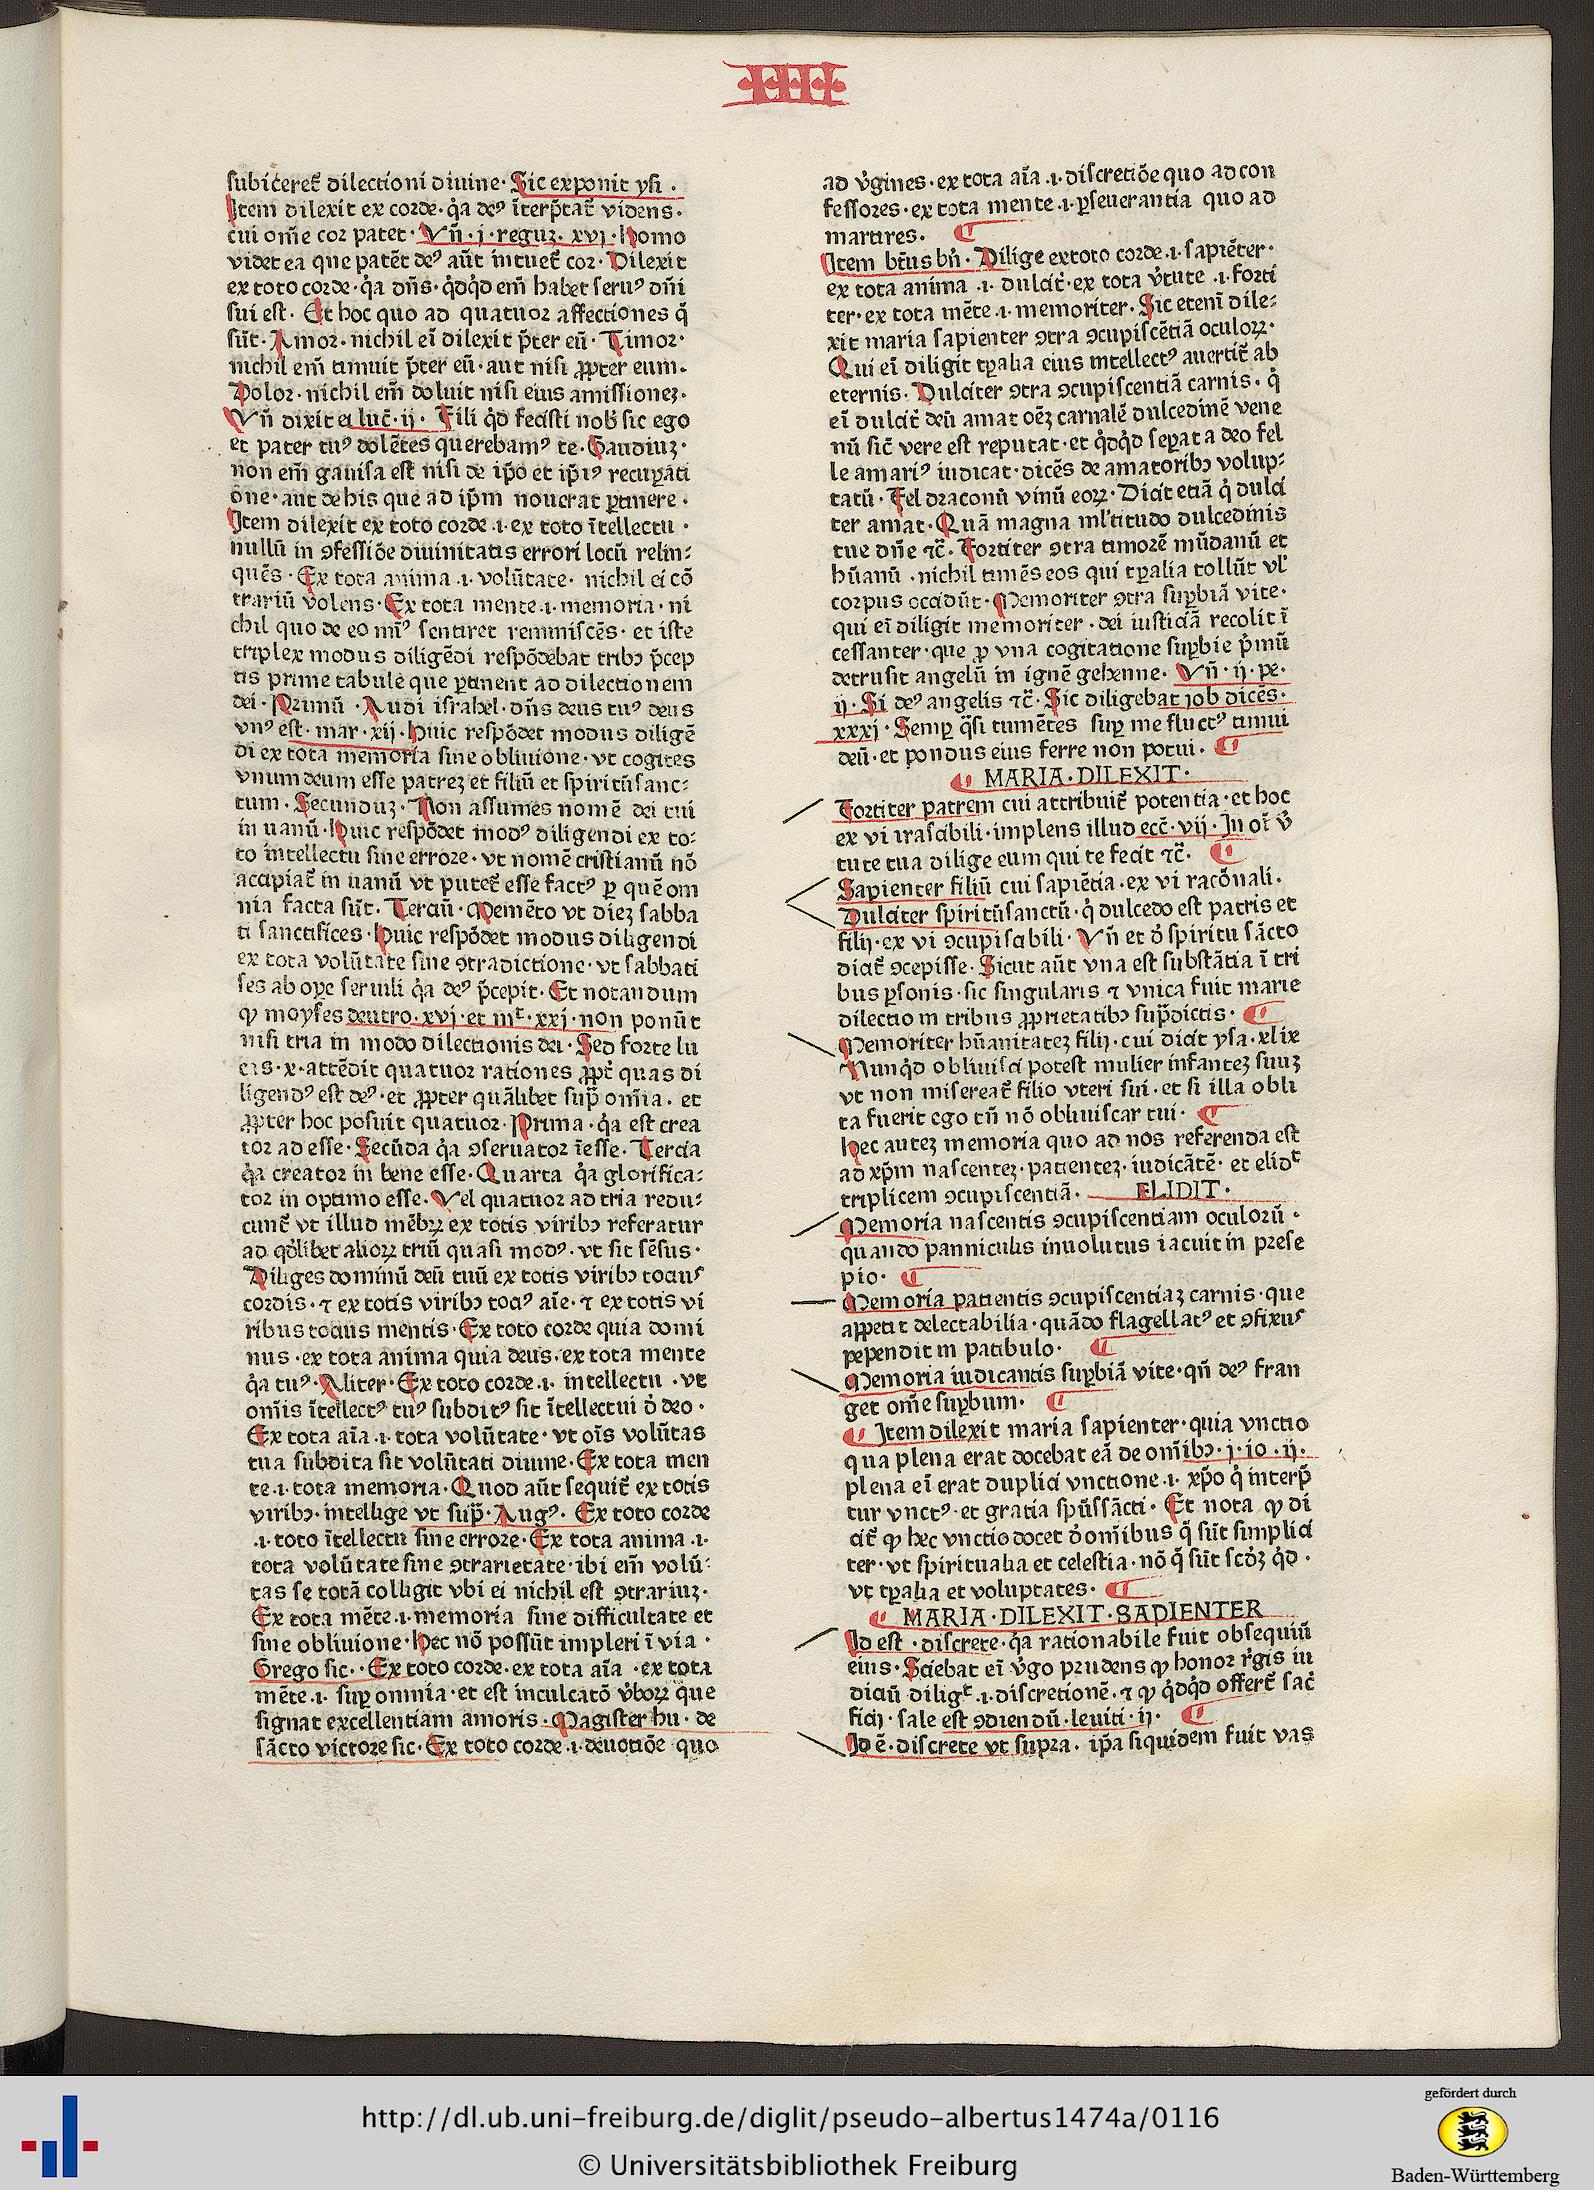 IIII
subiceret᷑ dilectioni diuine· Sic exponit ysi .
Item dilexit ex corde· q̇a deꝰ īterp̄tat᷑ videns·
cui om̄e cor patet· Vn̄·j·reguꝫ. xvj·Homo
videt ea que patēt deꝰ aūt intuet᷑ cor· Dilexit
ex toto corde· q̇a dn̄s· q̇dq̇d em̄ habet seruꝰ dn̄i
sui est· Et hoc quo ad quatuor affectiones q̄
sūt· Amor· nichil eī dilexit p̄ter eū· Timor·
nichil em̄ timuit p̄ter eū· aut nisi ꝓpter eum·
Dolor· nichil em̄ doluit nisi eius amissioneꝫ·
Vn̄ dixit ei luc̄·ij· Fili q̇d fecisti nob̄ sic ego
et pater tuꝰ dolētes querebamꝰ te· Gaudiuꝫ·
non em̄ gauisa est nisi de ip̄o et ip̄iꝰ recuꝑati
one· aut de his que ad ip̄m nouerat ꝑtinere·
Item dilexit ex toto corde ·i· ex toto ītellectu ·
nullū in ꝯfessiōe diuinitatis errori locū relin⸗
quēs· Ex tota anima ·i· volūtate· nichil ei cō
trariū volens· Ex tota mente·i·memoria· ni
chil quo de eo miꝰ sentiret reminiscēs· et iste
triplex modus diligēdi respōdebat tribꝯ p̄cep
tis prime tabule que ꝑtinent ad dilectionem
dei· Primū ·Audi israhel· dn̄s deus tuꝰ deus
vnꝰ est· mar·xij·Huic respōdet modus diligē
di ex tota memoria sine obliuione· vt cogites
vnum deum esse patreꝫ et filiū et spiritūsanc⸗
tum· Secunduꝫ· Non assumes nomē dei tui
in uanū· Huic respōdet modꝰ diligendi ex to⸗
to intellectu sine errore· vt nomē cristianū nō
accipiat᷑ in uanū vt putet᷑ esse factꝰ ꝑ quē om
nia facta sūt. Terciū· Memēto vt dieꝫ sabba
ti sanctifices· Huic respōdet modus diligendi
ex tota volūtate sine ꝯtradictione· vt sabbati
ses ab oꝑe seruili q̇a deꝰ p̄cepit· Et notandum
ꝙ moyses deutro·xvj·et mt·xxj·non ponūt
nisi tria in modo dilectionis dei· Sed forte lu
cas·x·attēdit quatuor rationes ꝓpt̄ quas di
ligendꝰ est deꝰ·et ꝓpter quālibet sup̄ om̄ia· et
ꝓpter hoc posuit quatuor· Prima· q̇a est crea
tor ad esse· Secūda q̇a ꝯseruator īesse· Tercia
q̇a creator in bene esse· Quarta q̇a glorifica⸗
tor in optimo esse· Vel quatuor ad tria redu⸗
cunt᷑ vt illud mēbꝝ ex totis viribꝯ referatur
ad qd̓libet alioꝝ triū quasi modꝰ· vt sit sēsus·
Diliges dominū deū tuū ex totis viribꝯ tociꝰ
cordis· ⁊ ex totis viribꝯ tociꝰ aīe· ⁊ ex totis vi
ribus tocius mentis· Ex toto corde quia domi
nus·ex tota anima quia deus·ex tota mente
q̇a tuꝰ·Aliter· Ex toto corde·i· intellectu ·vt
om̄is ītellectꝰ tuꝰ subditꝰ sit ītellectui ō deo·
Ex tota aīa·i·tota volūtate· vt oīs volūtas
tua subdita sit volūtati diuine· Ex tota men
te·i·tota memoria· Quod aūt sequit᷑ ex totis
viribꝯ·intellige vt sup̄· Augꝰ. Ex toto corde
·i·toto ītellectu sine errore· Ex tota anima ·i·
tota volūtate sine ꝯtrarietate·ibi em̄ volū⸗
tas se totā colligit vbi ei nichil est ꝯtrariuꝫ·
Ex tota mēte·i·memoria sine difficultate et
sine obliuione· Hec nō possūt impleri ī via ·
Grego sic·· Ex toto corde·ex tota aīa ·ex tota
mēte·i· suꝑ omnia·et est inculcatō v̓boꝝ que
signat excellentiam amoris· Magister hu· de
sācto victore sic· Ex toto corde·i·deuotiōe quo
ad v̓gines·ex tota aīa·i·discretiōe quo ad con
fessores·ex tota mente·i·ꝑseuerantia quo ad
martires·
Item bt̄us bn̄· Dilige extoto corde·i·sapiēter·
ex tota anima ·i· dulcit᷑·ex tota v̓tute ·i·forti
ter·ex tota mēte·i·memoriter· Sic etenī dile⸗
xit maria sapienter ꝯtra ꝯcupiscētiā oculoꝝ·
Qui eī diligit tꝑalia eius intellectꝰ auertit᷑ ab
eternis· Dulciter ꝯtra ꝯcupiscentiā carnis· q̇
eī dulcit᷑ deū amat oēꝫ carnalē dulcedinē vene
nū sic̄ vere est reputat·et q̇dq̇d seꝑat a deo fel
le amariꝰ iudicat· dicēs de amatoribꝯ volup⸗
tatū· Fel draconū vinū eoꝝ· Dicit etiā q̇ dulci
ter amat· Quā magna ml̓titudo dulcedinis
tue dn̄e ⁊c̄· Fortiter ꝯtra timorē mūdanū et
hūanū ·nichil timēs eos qui tꝑalia tollūt vl̓
corpus occidūt· Memoriter ꝯtra suꝑbiā vite·
qui eī diligit memoriter· dei iusticiā recolit ī
cessanter·que ꝓ vna cogitatione suꝑbie p̓mū
detrusit angelū in ignē gehenne· Vn̄·ij·pe·
ij· Si deꝰ angelis ⁊c̄· Sic diligebat job dicēs·
xxxj· Semꝑ q̄si tumētes suꝑ me fluctꝰ timui
deū·et pondus eius ferre non potui·
MARIA·DILEXIT·
Fortiter patrem cui attribuit᷑ potentia·et hoc
ex vi irascibili·implens illud ecc̄·vij· In oī v̓
tute tua dilige eum qui te fecit ⁊c̄·
Sapienter filiū cui sapiētia·ex vi racōnali·
Dulciter spiritūsanctū·q̇ dulcedo est patris et
filij·ex vi ꝯcupiscibili· Vn̄ et ō spiritu sācto
dicit᷑ ꝯcepisse· Sicut aūt vna est substātia ī tri
bus ꝑsonis·sic singularis ⁊ vnica fuit marie
dilectio in tribus ꝓprietatibꝯ sup̄dictis·
Memoriter hūanitateꝫ filij·cui dicit ysa·xlix
Nunq̇d obliuisci potest mulier infanteꝫ suuꝫ
vt non misereat᷑ filio vteri sui·et si illa obli
ta fuerit ego tn̄ nō obliuiscar tui·
Hec auteꝫ memoria quo ad nos referenda est
ad xp̄m nascenteꝫ·patienteꝫ·iudicātē· et elidt
triplicem ꝯcupiscentiā· ELIDIT·
Memoria nascentis ꝯcupiscentiam oculorū·
quando panniculis inuolutus iacuit in prese
pio·
Memoria patientis ꝯcupiscentiaꝫ carnis·que
appetit delectabilia·quādo flagellatꝰ et ꝯfixus
pependit in patibulo·
Memoria iudicantis suꝑbiā vite·qn̄ deꝰ fran
get om̄e suꝑbum·
Item dilexit maria sapienter·quia vnctio
qua plena erat docebat eā de om̄ibꝯ·j·io·ij·
plena eī erat duplici vnctione·i· xp̄o q̇ interp̄
tur vnctꝰ·et gratia spūssācti· Et nota ꝙ di
cit᷑ ꝙ hec vnctio docet ō om̄ibus q̄ sūt simplici
ter·vt spiritualia et celestia·nō q̄ sūt scd̓ꝫ q̇d·
vt tꝑalia et voluptates·
MARIA·DILEXIT·SAPIENTER
Id est ·discrete·q̇a rationabile fuit obsequiū
eius· Sciebat eī v̓go prudens ꝙ honor r̓gis iu
diciū diligt·i·discretionē·⁊ ꝙ q̇dq̇d offert᷑ sac̓
ficij·sale est ꝯdiendū·leuiti·ij·
Id ē·discrete vt supra· ip̄a siquidem fuit vas
http://dl.ub.uni-freiburg.de/diglit/pseudo-albertus1474a/0116
© Universitätsbibliothek Freiburg
gefördert durch
Baden-Württemberg